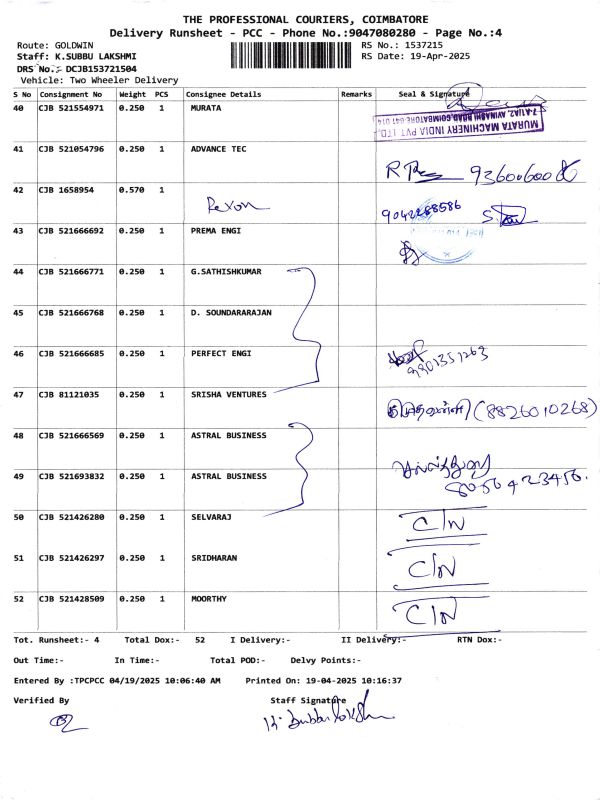 THE PROFESSIONAL COURIERS, COIMBATORE
Delivery Runsheet - PCC - Phone No.:9047080280 - Page No.:4
Route: GOLDWIN RS No.: 1537215
Staff: K.SUBBU LAKSHMI RS Date: 19-Apr-2025
DRS No.:- DCJB153721504
Vehicle: Two Wheeler Delivery
S No Consignment No Weight PCS Consignee Details Remarks Seal & Signature
40 CJB 521554971 0.250 1 MURATA
MURATA MACHINERY INDIA PVT LTD.
7-A1/A2, AVINASHI ROAD, COIMBATORE-641 014
41 CJB 521054796 0.250 1 ADVANCE TEC
42 CJB 1658954 0.570 1 Rexon 9042288586
43 CJB 521666692 0.250 1 PREMA ENGI
44 CJB 521666771 0.250 1 G.SATHISHKUMAR
45 CJB 521666768 0.250 1 D. SOUNDARARAJAN
46 CJB 521666685 0.250 1 PERFECT ENGI
47 CJB 81121035 0.250 1 SRISHA VENTURES (8826010268)
48 CJB 521666569 0.250 1 ASTRAL BUSINESS
49 CJB 521693832 0.250 1 ASTRAL BUSINESS 8056423456.
50 CJB 521426280 0.250 1 SELVARAJ C/N
51 CJB 521426297 0.250 1 SRIDHARAN C/N
52 CJB 521428509 0.250 1 MOORTHY C/N
Tot. Runsheet:- 4 Total Dox:- 52 I Delivery:- II Delivery:- RTN Dox:-
Out Time:- In Time:- Total POD:- Delvy Points:-
Entered By :TPCPCC 04/19/2025 10:06:40 AM Printed On: 19-04-2025 10:16:37
Verified By Staff Signature
K. Subbu lakshmi